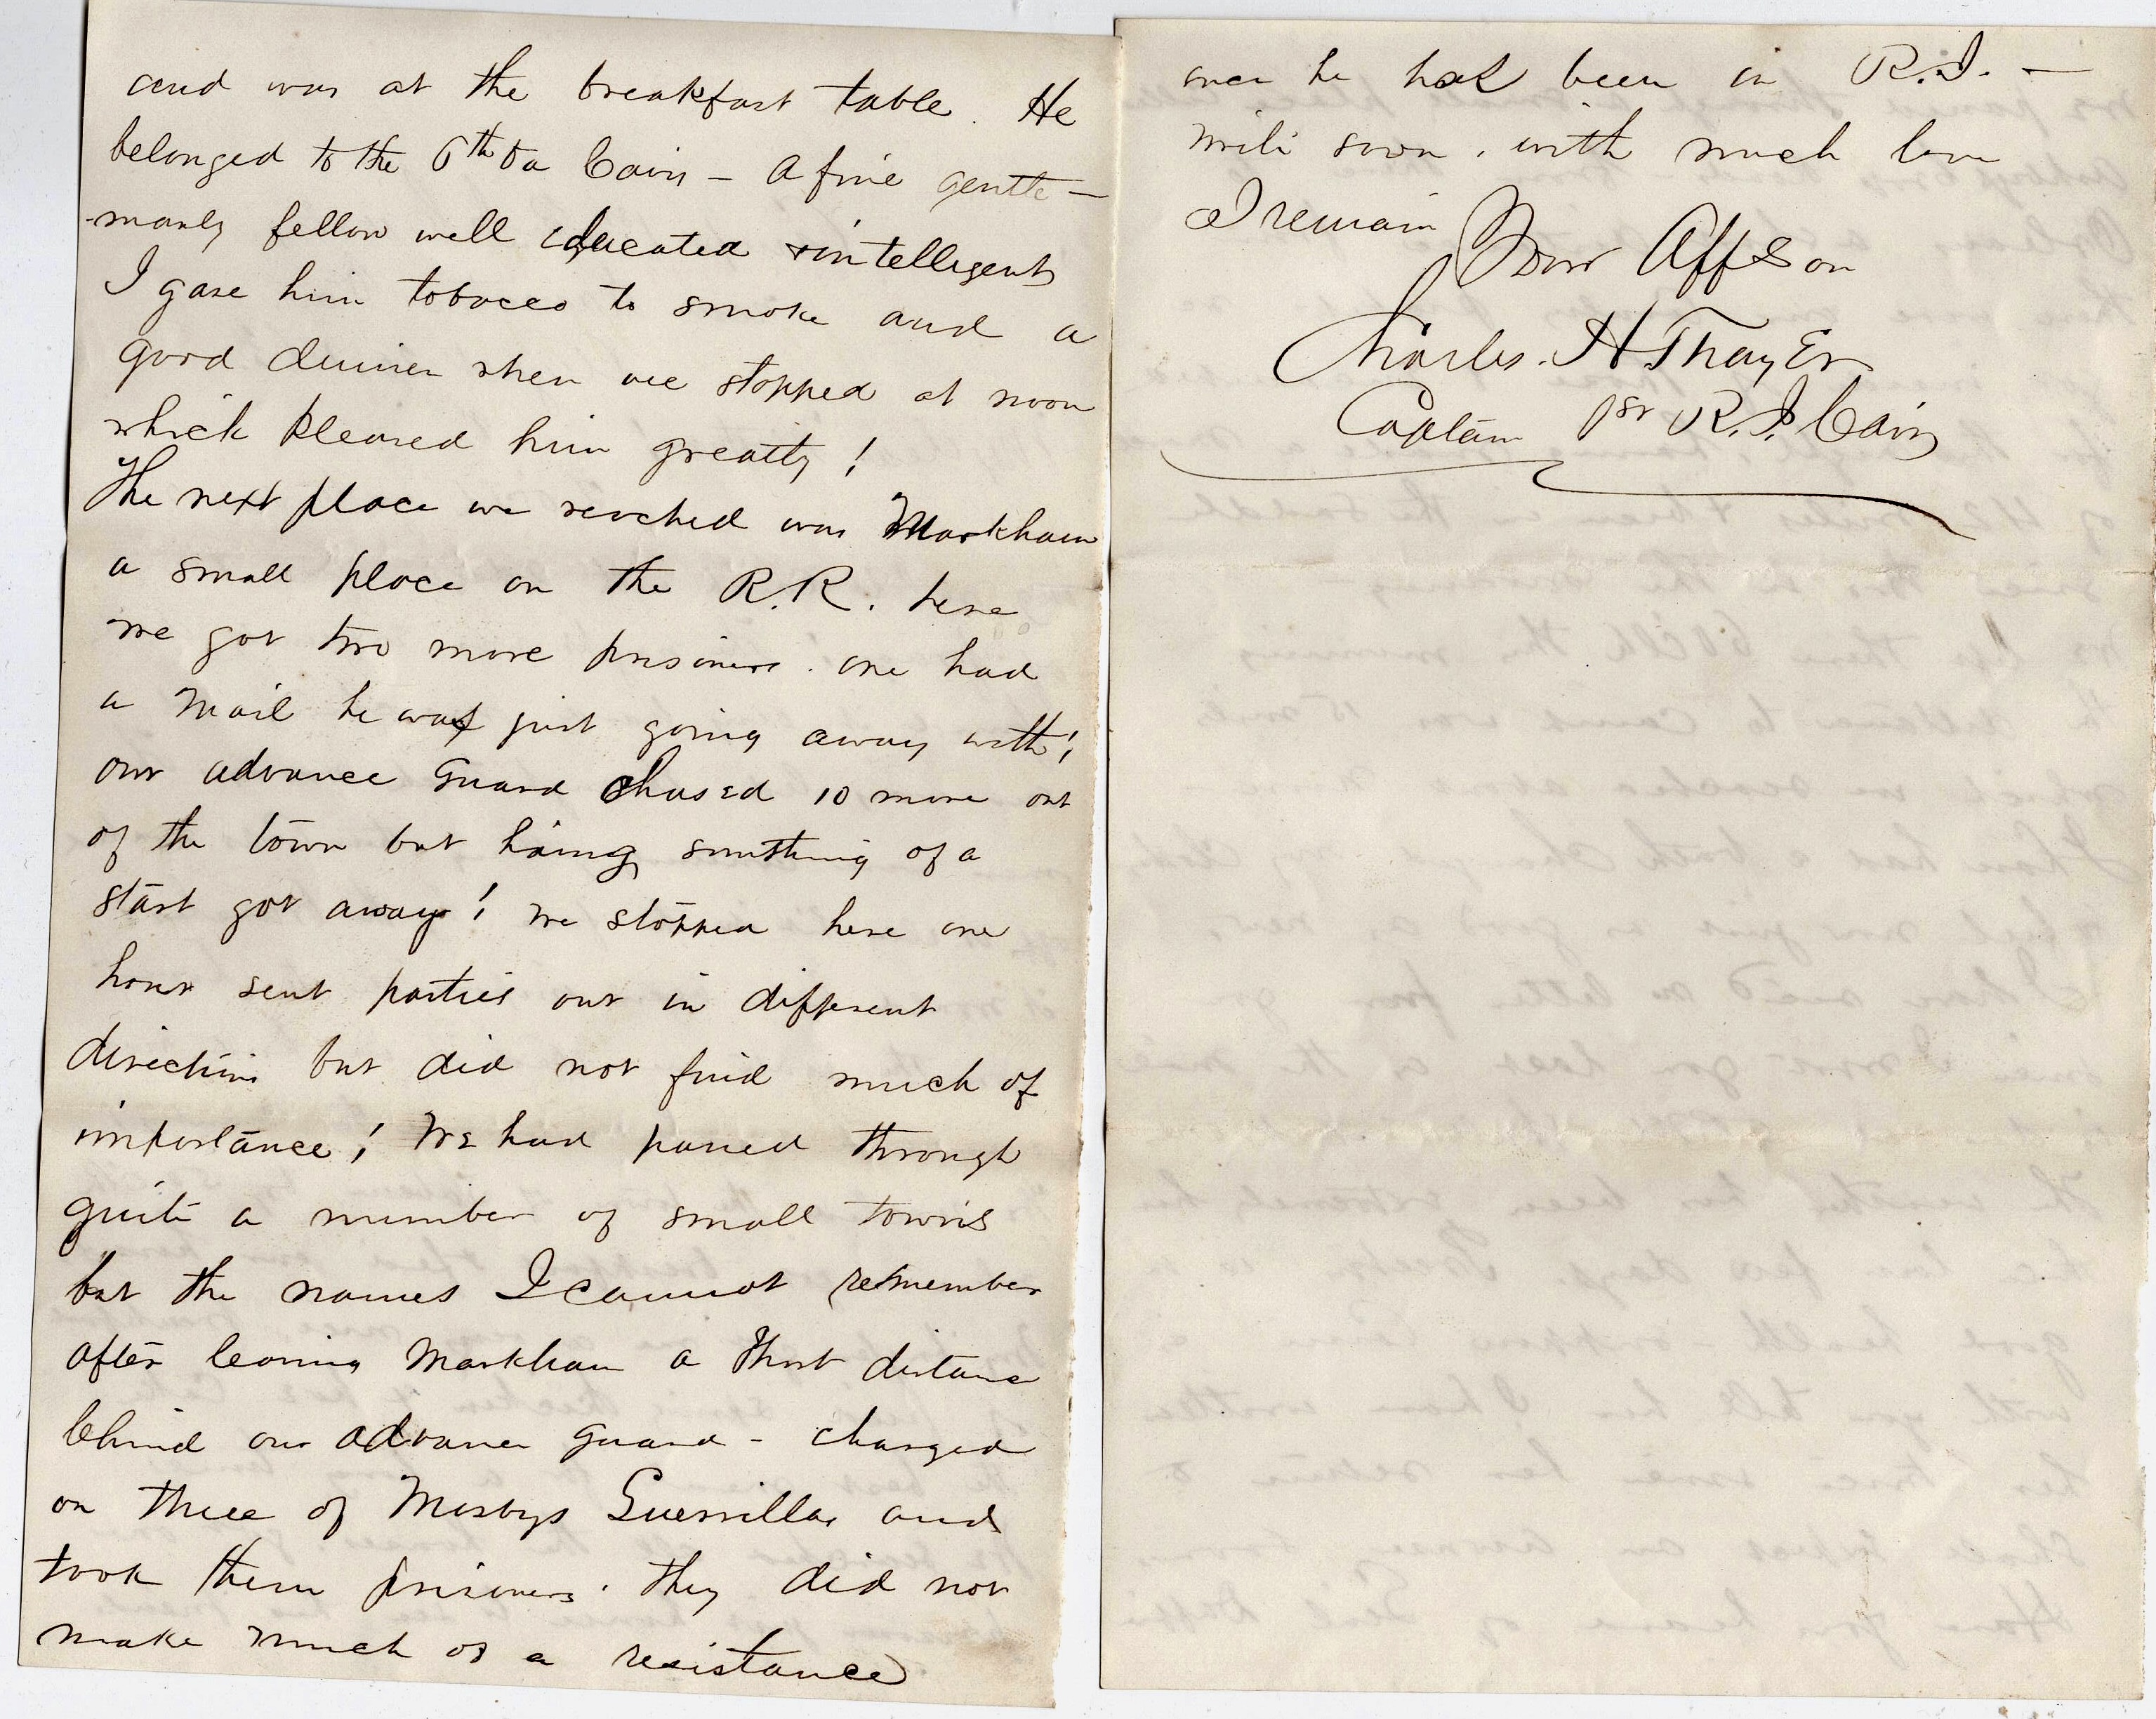 and was at the breakfast table. He
belonged to the 6th Va Cavy – A fine gentle–
-manly fellow well educated & intelligent
I gave him tobacco to smoke and a
good dinner when we stopped at noon
which pleased him greatly!
The next place we reached was Markham
a small place on the R.R. here
we got two more prisoners. one had
a mail he was just going away with!
our advance Guard chased 10 more out
of the town but having something of a
start got away! We stopped here one
hour sent parties out in different
directions but did not find much of
importance! We had passed through
quite a number of small towns
but the names I cannot remember
after leaving Markham a short distance
behind our advance guard – charged
on three of Mosbys Guerrillas and
took them prisoners. they did not
make much of a resistance
over he had been in R.I. –
write soon. with much love
I remain Your Aff Son
Charles. H Thayer
Captain 1st R.I. Cavy